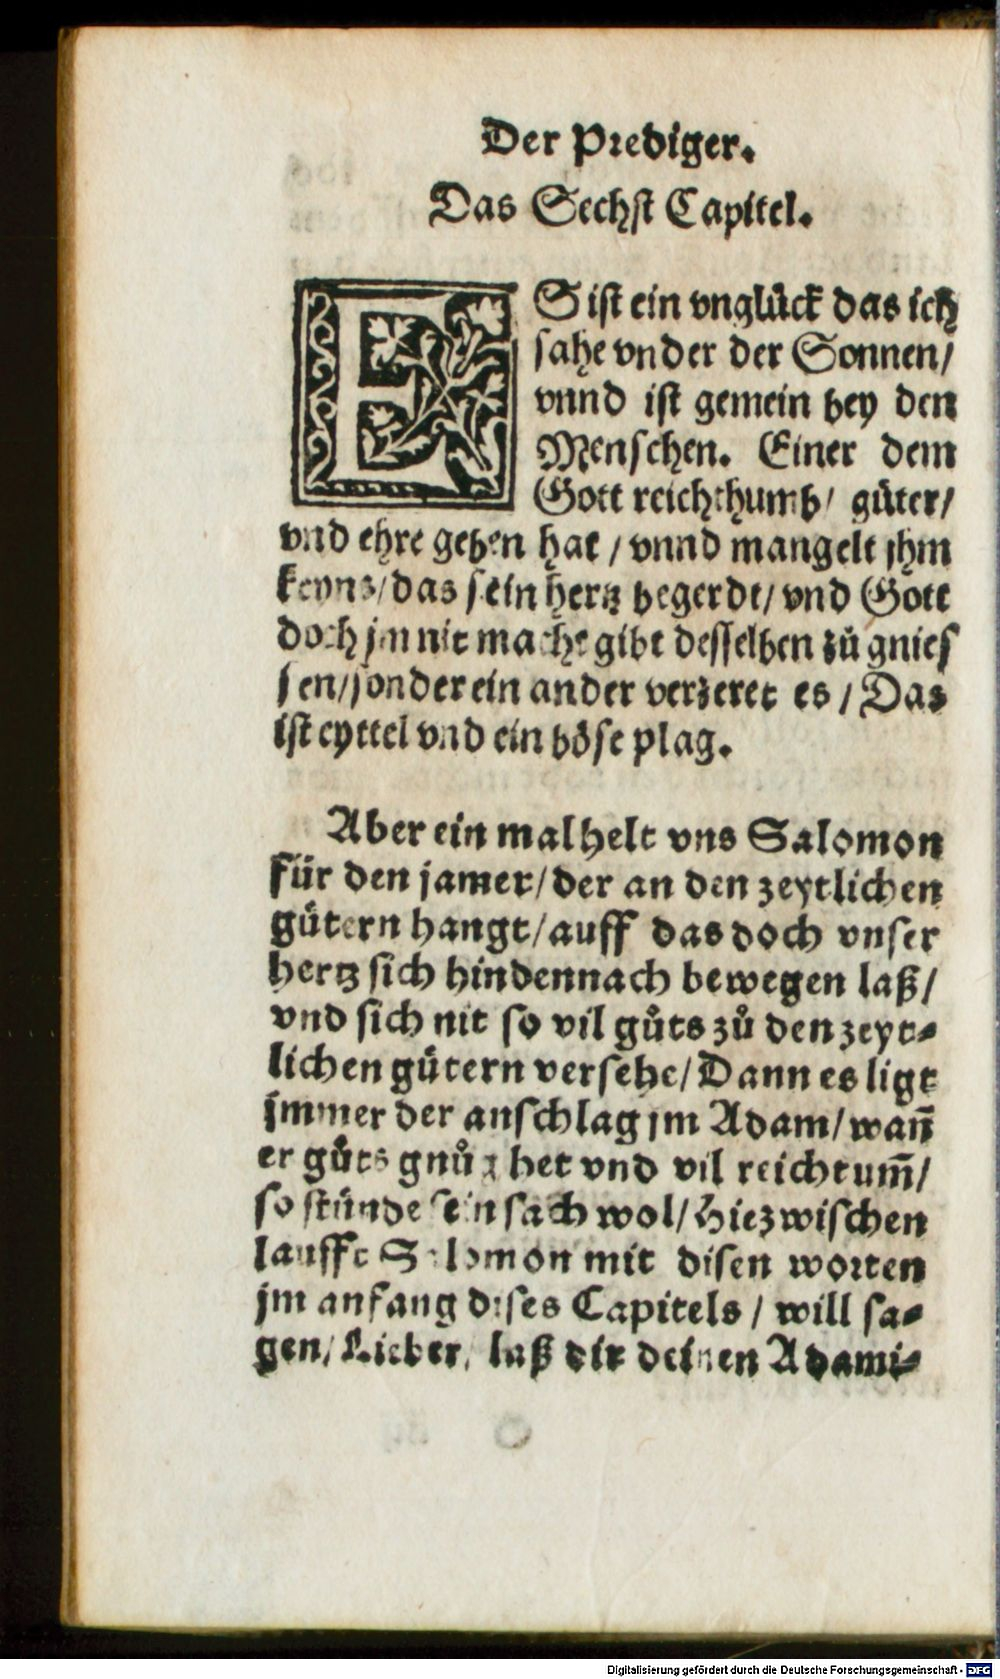 Der Prediger.
Das Sechst Capitel.
ES ist ein vnglück das ich
sahe vnder der Sonnen/
vnnd ist gemein bey den
Menschen. Einer dem
Gott reichthumb/ güter/
vnd ehre geben hat / vnnd mangelt jhm
keyns/das sein hertz begerdt/ vnd Gott
doch jm nit macht gibt desselben zů gnies
sen/sonder ein ander verzeret es / Das
ist eyttel vnd ein böse plag.
Aber ein mal helt vns Salomon
für den jamer/der an den zeytlichen
gütern hangt/auff das doch vnser
hertz sich hindennach bewegen laß/
vnd sich nit so vil gůts zů den zeyt⸗
lichen gütern versehe/Dann es ligt
immer der anschlag jm Adam/wañ
er gůts gnůg het vnd vil reichtum̃/
so stünde sein sach wol/Hiezwischen
lauffe Salomon mit disen worten
jm anfang dises Capitels / will sa⸗
gen/Lieber, laß dir deinen Adami⸗
Digitalisierung gefördert durch die Deutsche Forschungsgemeinschaft - DFG